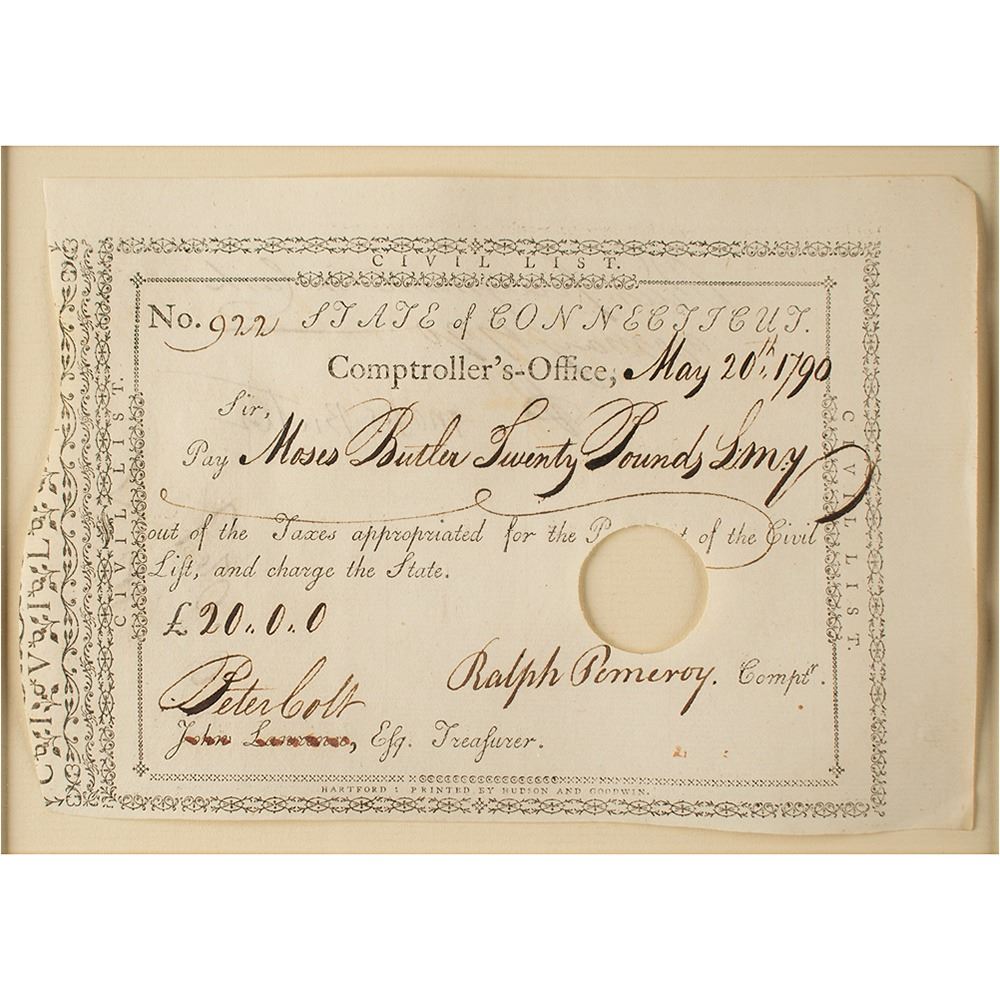 CIVIL LIST.
No. 922 STATE of CONNECTICUT.
Comptroller's-Office, May 20th, 1790
Sir,
Pay Moses Butler Twenty Pounds L my
out of the Taxes appropriated for the P t of the Civil
Liſt, and charge the State.
£20.0.0
Ralph Pomeroy. Comptr.
Peter Colt
John Lawrence, Eſq. Treaſurer.
HARTFORD: PRINTED BY HUDSON AND GOODWIN.
CIVIL LIST.
CIVIL LIST.
CIVIL